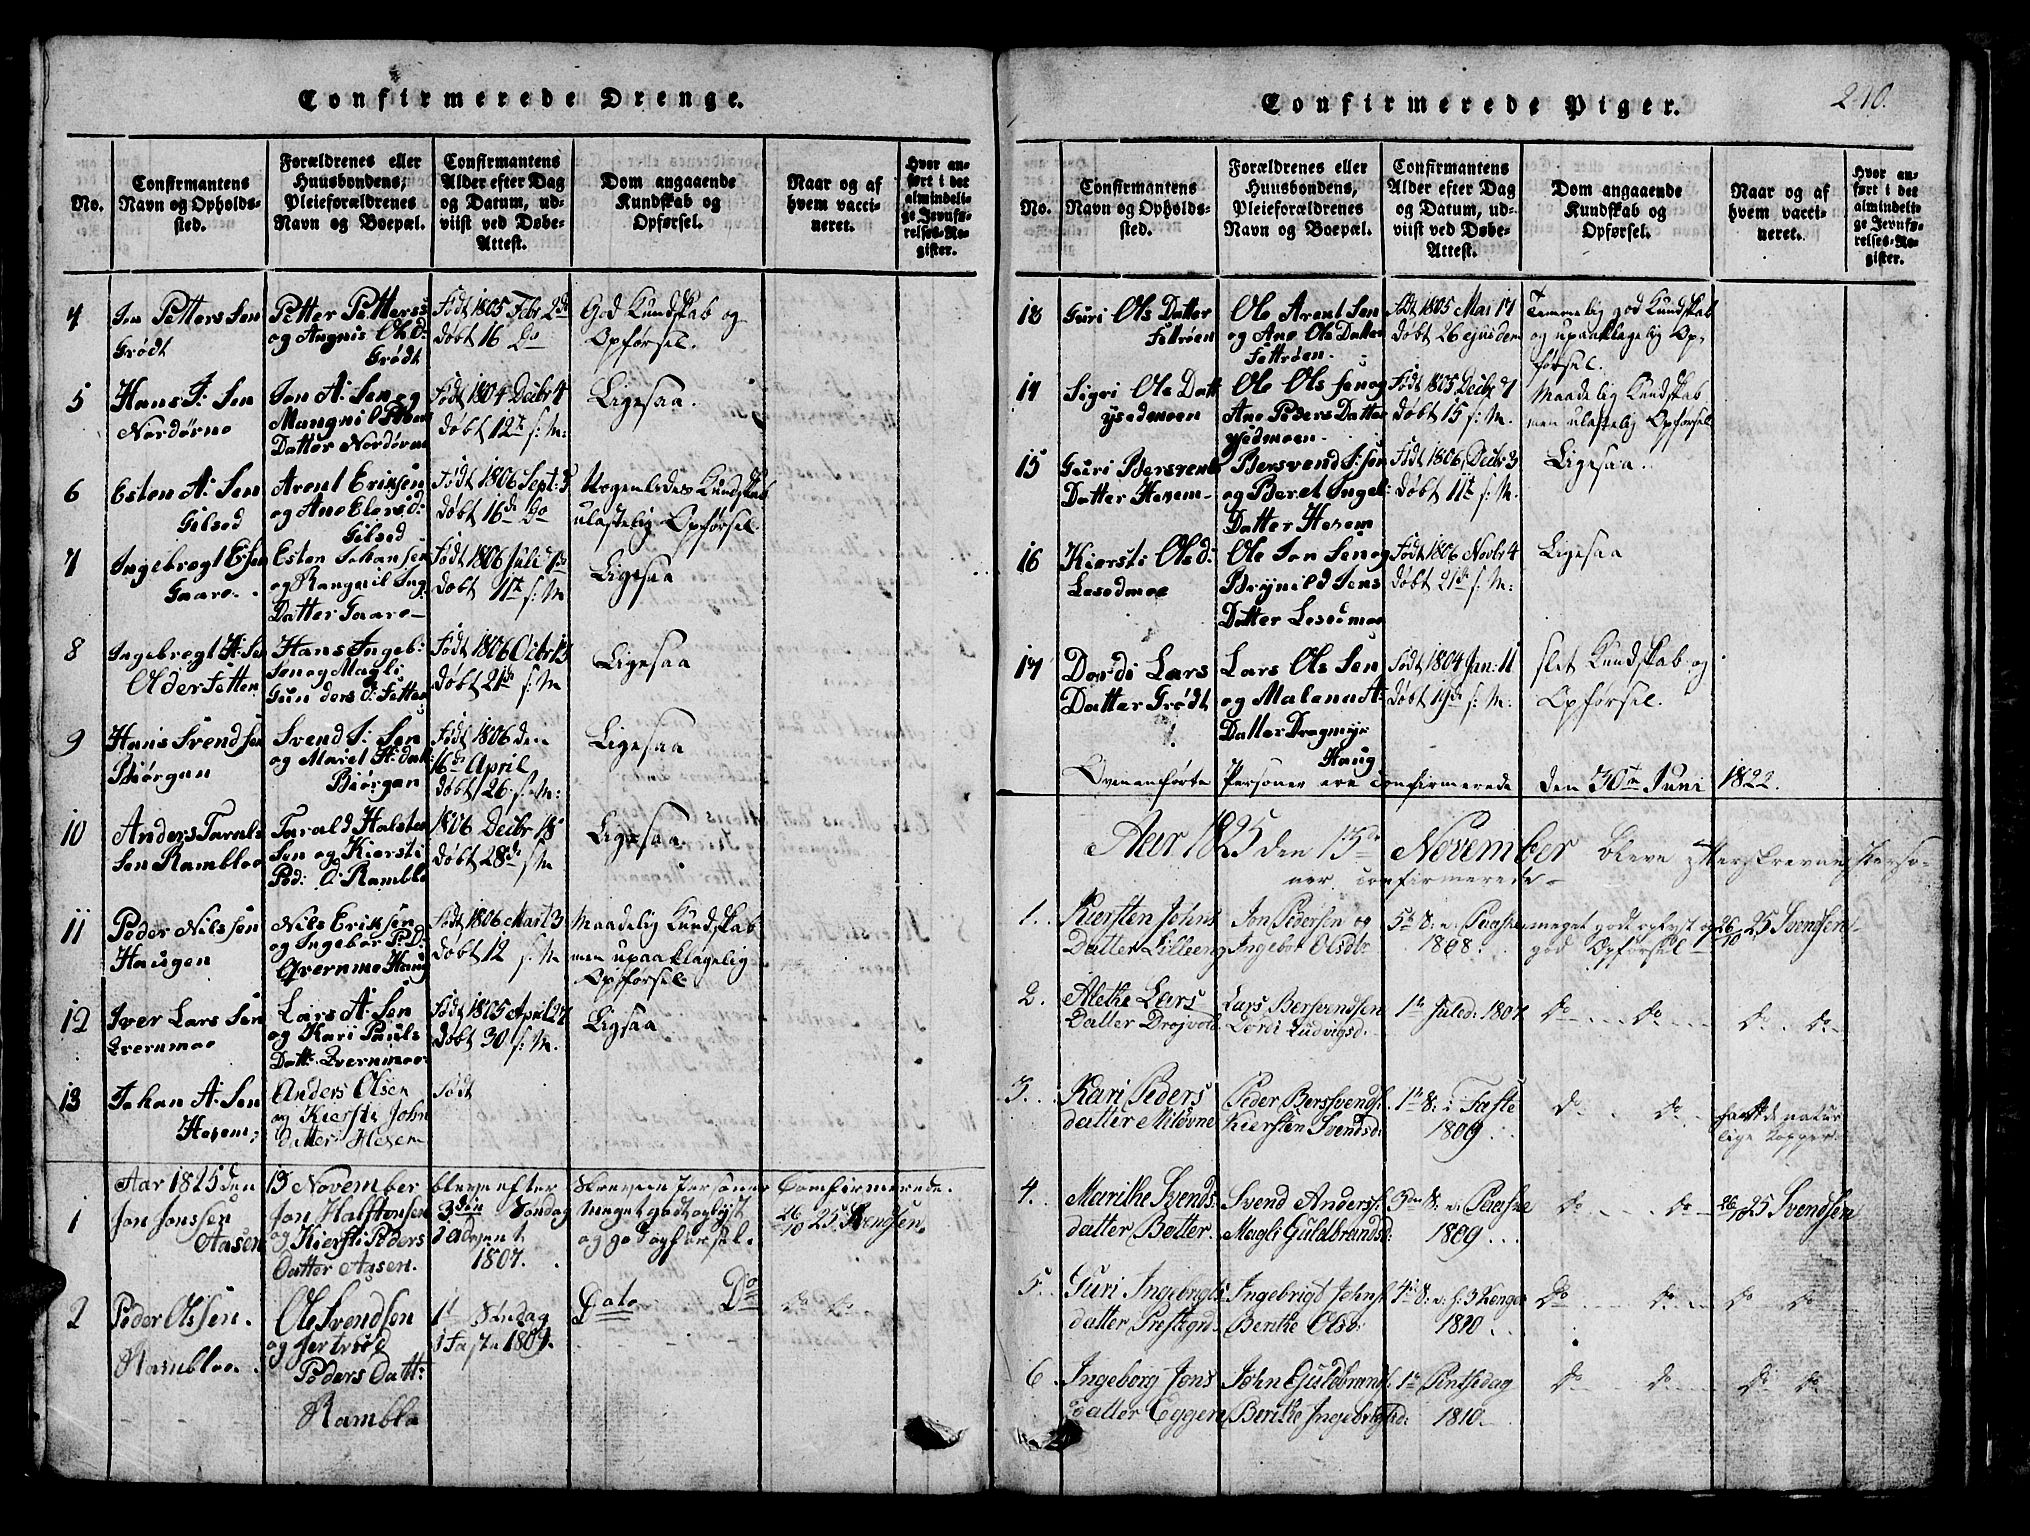 Confirmerede Drenge.
No.
Confirmantens
Navn og Opholds-
sted.
Forældrenes eller
Huusbondens,
Pleieforældrenes
Navn og Boepæl.
Confirmantens
Alder efter Dag
og Datum, ud-
viist ved Døbe-
Attest.
Dom angaaende
Kundskab og
Opførsel.
Naar og af
hvem vacci-
neret.
Hvor an-
ført i det
almindeli-
ge Jevnfø-
relses-Re-
gister.
4
Jon Petters Sen
Grødt
Petter Petters
og Angnis Ols d:
Grødt
Født 1805 Febr 2de
døbt 16 Do
God Kundskab og
Opførsel.
5
Hans J: Sen
Nordørne
Jon A: Sen og
Mangnil
Datter Nordørne
Født 1804 Decbr 4
døbt 12te s: M:
Ligesaa.
6
Esten A: Sen
Gilsed
Arent Eriksen
og Ane Elers d:
Gilsed
Født 1806 Sept: 3
døbt 16de Do
Nogenledes Kundskab
ulastelig Opførsel.
7
Ingebregt E: Sen
Gaare
Esten Johansen
og Rangnil Ing
Datter Gaare
Født 1806 Juli
døbt 11te s: M
Ligesaa
8
Ingebregt H: Se
Older Fetten
Hans Ingeb:
Sen og Magli
Gunders d: Fetten
Født 1806 Octbr 13
døbt 21de s: M
Ligesaa
9
Hans Svendsen
Biørgan
Svend J: Sen
og Maret H: datt
Biørgan
Født 1806 den
16de April
døbt 26 s: M:
Ligesaa
10
Anders Taralt
Sen Rambloe
Tarald Halsten
Sen og Kiersti
Ped: d: Rambla
1806 Decbr 18
døbt 28de s: M
Ligesaa
11
Peder Nilssen
Haugen
Nils Eriksen
og Ingebor P: D:
Qvernmo Haug
Født 1806 Mart 3
døbt 12 s: M
Maadelig Kundskab
men upaaklagelig
Opførsel
12
Iver Lars Sen
Qvernmoe
Lars A: Sen
og Kari Pauls
Datt: Qvernmoe
Født 1805 April 27
Døbt 30 s: M.
Ligsaa
13
Johan A: Sen
Hesem
Anders Olsen
og Kiersti John
datter Hesem
Født
Aar 1825 den 13 November bleve efter skrevene Personer Comfirmerede.
1
Jon Jonssen
Aasen
Jon Halstensen
og Kiersti Peders
Datter Aasen.
3die Søndag
i Advent
1807.
Meget godt oplyst
og god opførsel.
26/10 25 Svendsen
2
Peder Olssen.
Rambloe.
Ole Svendsen
og Jertrud
Peders Datt:
Rambla
1t Søndag
i Faste 1809.
Dato Do
Do Do
Confirmerede Piger.
210.
No.
Confirmantens
Navn og Opholds-
sted.
Forældrenes eller
Huusbondens,
Pleieforældrenes
Navn og Boepæl.
Confirmantens
Alder efter Dag
og Datum, ud-
viist ved Døbe-
Attest.
Dom angaaende
Kundskab og
Opførsel.
Naar og af
hvem vacci-
neret.
Hvor an-
ført i det
almindeli-
ge Jevnfø-
relses-Re-
gister.
13
Guri Ols Datter
Fettrøen
Ole Arent Sen
og Ane Ols Datter
Fettrøen
Født 1805 Mai 17
døbt 26 ejusdem
Temmelig god Kundskab
og upaaklagelig Op-
førsel.
14
Sigri Ols Datt
ysedmoen
Ole Ols Sen og
Ane Peders Datter
ysedmoen
Født 1805 Decbr 7
døbt 15 s: M.
Maadelig Kundskab
men ulastelig Opførsel
15
Guri Bersvend
Datter Hesem
Bersvend J: Sen
og Beret Ingel:
Datter Hesem
Født 1806, Decbr 3
døbt 11te s: M.
Ligesaa.
16
Kiersti Ols d:
Lesedmoe
Ole Jon Sen og
Brynild Jens
Datter Lesedmoe
Født 1806 Novbr 4
døbt 21de s: M:
Ligesaa
17
Dordi Lars
Datter Grødt
Lars Ols Sen
og Malena A:
Datter Dragmyr
Haug
Født 1804 Jan: 11
døbt 19de s: M:
slet Kundskab og
Opførsel.
Ovenanførte Personer ere Confirmerede den 30te Juni 1822.
Aar 1825 den 13de November bleve efterskrevne Perso-
ner confirmerede
1.
Kiersten Johns
Datter Lilleeng
Jon Pedersen og
Ingebor Olsdr
5te S: e: Paaske
1808.
meget godt oplyst og
god Opførsel
26/10 25 Svendsen
2.
Alethe Lars
Datter Drøjvold
Lars Bersvendsen
Dordi Ludvigsd.
1te Juled: 1807.
Do Do
Do Do
3.
Kari Peders
datter Midøvne
Peder Bersvends:
Kiersten Svendsd:
1te S: i Faste
1809
Do Do
havt de natur
lige Kopper
4.
Marithe Svends
datter Botter.
Svend Anders:
Magli Guldbrandsd:
3die S: e: Paaske
1809
Do Do
26/10 25 Svendsen
5.
Guri Ingebrigts
datter Prestegrd:
Ingebrigt Johns:
Berithe Olsd:
4de S: e: h: 3 Konger
1810
Do Do
Do Do
6
Ingeborg Jons
datter Eggen
John Guldbrands:
Berithe Ingebrigtsd:
1te Pintsedag
1810.
Do Do
Do Do